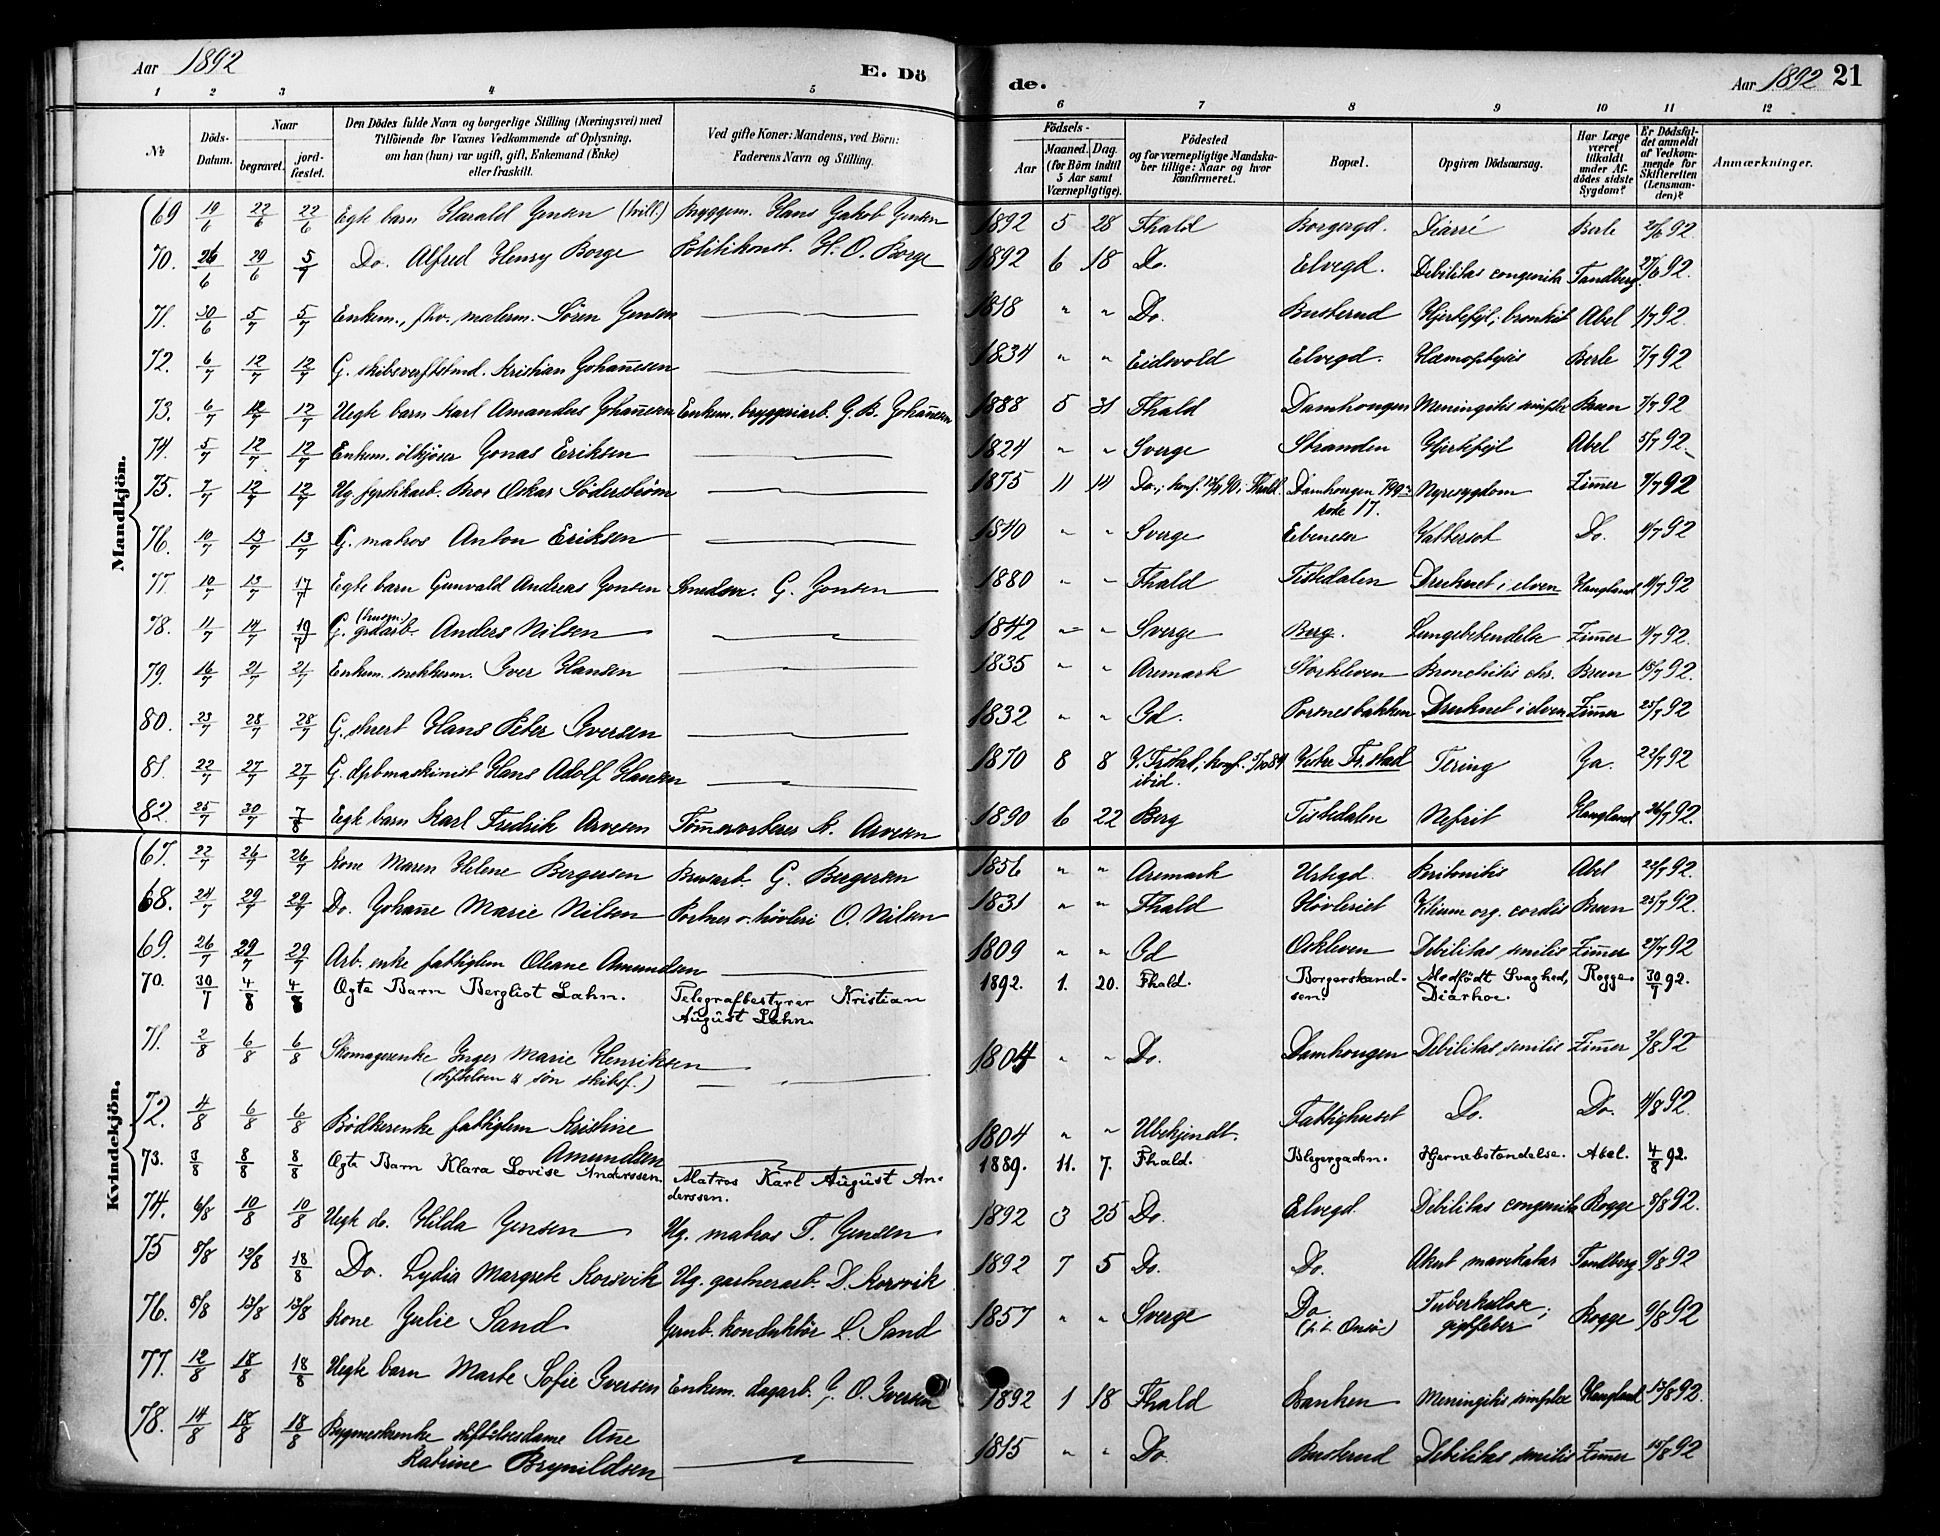 Aar 1892 E. Döde. Aar 1892 21
1 2 3 4 5 6 7 8 9 10 11 12
No. Döds-Datum. Naar begravet. jord-fæstet. Den Dödes fulde Navn og borgerlige Stilling (Næringsvei) med Tilföiende for Voxnes Vedkommende af Oplysning, om han (hun) var ugift, gift, Enkemand (Enke) eller fraskilt. Ved gifte Koner: Mandens, ved Börn: Faderens Navn og Stilling. Födsels- Aar Maaned. Dag. (for Börn indtil 5 Aar samt Værnepligtige). Födested og for værnepligtige Mandskaber tillige: Naar og hvor konfirmeret. Bopæl. Opgiven Dödsaarsag. Har Læge været tilkaldt under Afdödes sidste Sygdom? Er Dödsfaldet anmeldt af Vedkommende for Skifteretten (Lensmanden)? Anmærkninger.
Mandkjön.
69 19/6 22/6 22/6 Egte barn Harald Jensen (tvill.) Byggem. Hans Jakob Jensen 1892 5 28 Fhald Borgergd. Diarré Berle 92
70. 26/6 29/6 5/7 Do. Alfred Henry Borge Politikonst. H. O. Borge 1892 6 18 Do. Elvegd. Debilitas congenita Tandberg 27/6 92.
71. 30/6 5/7 5/7 Enkem., fhv. malerm. Sören Jensen 1818 " " Do. Busterud Hjertefejl; bronkit Abel 1/7 92.
72. 6/7 12/7 12/7 G. skibsverftstmd. Kristian Johañesen 1834 " " Eidsvold Elvegd. Hæmoptysis Berle 7/7 92
73. 6/7 12/7 12/7 Uegte barn Karl Amandus Johañesen Enkem. bryggeriarb. J. B. Johañesen 1888 5 31 Fhald Damhougen Meningitis simplex Bruun 7/7 92
74. 5/7 12/7 12/7 Enkem. ölkjörer Jonas Eriksen 1824 " " Sverge Stranden Hjertefejl Abel 5/7 92
75. 7/7 12/7 12/7 Ug. fyrstikarb. Bror Oskar Söderström 1875 11 14 Do.; konf. 90 i Fhald. Damhougen 17. Nyresygdom Zim̄er 7/7 92
76. 10/7 13/7 13/7 G. matros Anton Eriksen 1840 " " Sverge Ebeneser Vattersot Do. 11/7 92
77. 10/7 13/7 17/7 Egte barn Gunvald Andreas Jonsen Smedsv. G. Jonsen 1880 " " Fhald Tistedalen Druknet i elven Haugland 11/7 92
78. 11/7 14/7 19/7 G. (husm.) grdarb. Anders Nilsen 1842 " " Sverge Berg. Lungebetendelse Zim̄er 11/7 92.
79. 16/7 21/7 21/7 Enkem. snekkerm. Iver Hansen 1835 " " Aremark Storkleven Bronchitis chr. Bruun 18/7 92.
80. 23/7 28/7 28/7 G. stuert Hans Peter Iversen 1832 " " Id. Porsnesbakken Druknet i elven Zim̄er 25/7 92
81. 22/7 27/7 27/7 G. dpbmaskinist Hans Adolf Hansen 1870 8 8 V. Frstad, konf. 84 ibid. Vestre Fr.stad Tering Ja. 22/7 92
82. 25/7 30/7 7/8 Egte barn Karl Fredrik Arvesen Töm̄ersorterer A. Arvesen 1890 6 22 Berg Tistedalen Nefrit Haugland 26/7 92.
Kvindekjön.
67. 22/7 26/7 26/7 Kone Maren Helene Bergersen Brusarb. G. Bergersen 1856 " " Aremark Urtegd. Peritonitis Abel 22/7 92.
68. 24/7 29/7 29/7 Do. Johañe Marie Nilsen Portner v. hövleri O. Nilsen 1831 " " Fhald Hövleriet Vitium org. cordis Bruun 25/7 92.
69. 26/7 29/7 29/7 Arb. enke fattiglem Oleane Amundsen 1809 " " Id Oskleven Debilitas senilis Zim̄er 27/7 92
70. 30/7 4/8 4/8 Ægte Barn Bergliot Lahn. Telegrafbestyrer Kristian August Lahn. 1892. 1. 20. Fhald. Borgerskandsen. Medfödt Svaghed, Diarhoe. Rogge 30/7 92.
71. 2/8 6/8 6/8 Skomagerenke Inger Marie Henriksen 1804 " " Do. Damhougen Debilitas senilis Zim̄er 3/8 92
72. 4/8 6/8 6/8 Bödkerenke fattiglem Kristine Amundsen 1804 " " Ubekjendt. Fattighuset Do. Do. 4/8 92.
73. 3/8 8/8 8/8 Ægte Barn Klara Lovise Anderssen. Matros Karl August Anderssen. 1889. 11. 7. Fhald. Blegergaden. Hjernebetændelse. Abel. 4/8 92.
74. 6/8 10/8 10/8 Uegte do. Hilda Jensen Ug. matros T. Jensen 1892 3 25 Do. Elvegd. Debilitas congenita Rogge 8/8 92.
75 8/8 12/8 18/8 Do. Lydia Margrete Korsvik Ug. gartnerarb. D. Korsvik 1892 7 5 Do. Do. Akut mavekatar Tandberg 9/8 92
76. 8/8 13/8 13/8 Kone Julie Sand Jernb. konduktör L. Sand 1857 " " Sverge Do. (p. t. Onsö) Tuberkulose; gigtfeber Rogge 9/8 92
77. 12/8 18/8 18/8 Uegte barn Marte Sofie Iversen Enkem. dagarb. J. O. Iversen 1892 1 18 Fhald Banken Meningitis simplex Haugland 13/8 92.
78. 14/8 18/8 18/8 Bygmesterenke stiftelsesdame Añe Katrine Brynildsen 1815 " " Do. Busterud Debilitas senilis Zim̄er 15/8 92